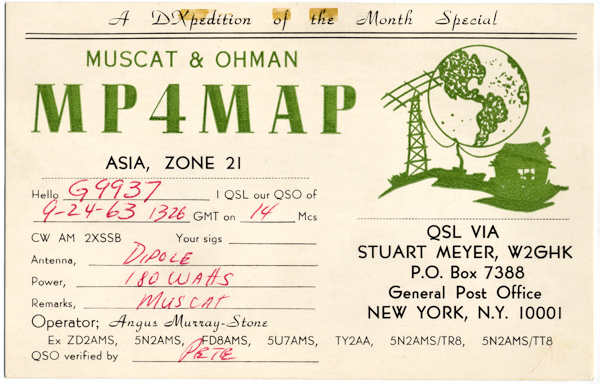 A DXpedition of the Month Special
MUSCAT & OHMAN
MP4MAP
ASIA, ZONE 21
Hello G9937 I QSL our QSO of
9-24-63 1326 GMT on 14 Mcs
CW AM 2XSSB Your sigs
Antenna, DIPOLE
Power, 180 WATTS
Remarks, MUSCAT
Operator; Angus Murray-Stone
Ex ZD2AMS, 5N2AMS, FD8AMS, 5U7AMS, TY2AA, 5N2AMS/TR8, 5N2AMS/TT8
QSO verified by PETE
QSL VIA
STUART MEYER, W2GHK
P.O. Box 7388
General Post Office
NEW YORK, N.Y. 10001